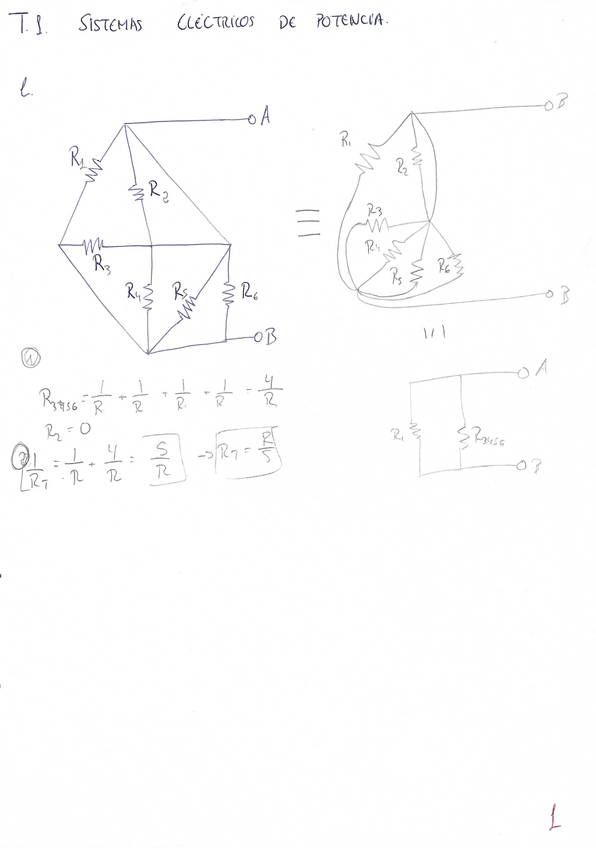 T.1. SISTEMAS ELÉCTRICOS DE POTENCIA.
1.
A
R1
R2
R3
R4
R5
R6
B
≡
B
R1
R2
R3
R4
R5
R6
B
①
R3456 = 1/R + 1/R + 1/R + 1/R = 4/R
R2 = 0
② 1/RT = 1/R + 4/R = 5/R → RT = R/5
A
R1
R3456
B
1